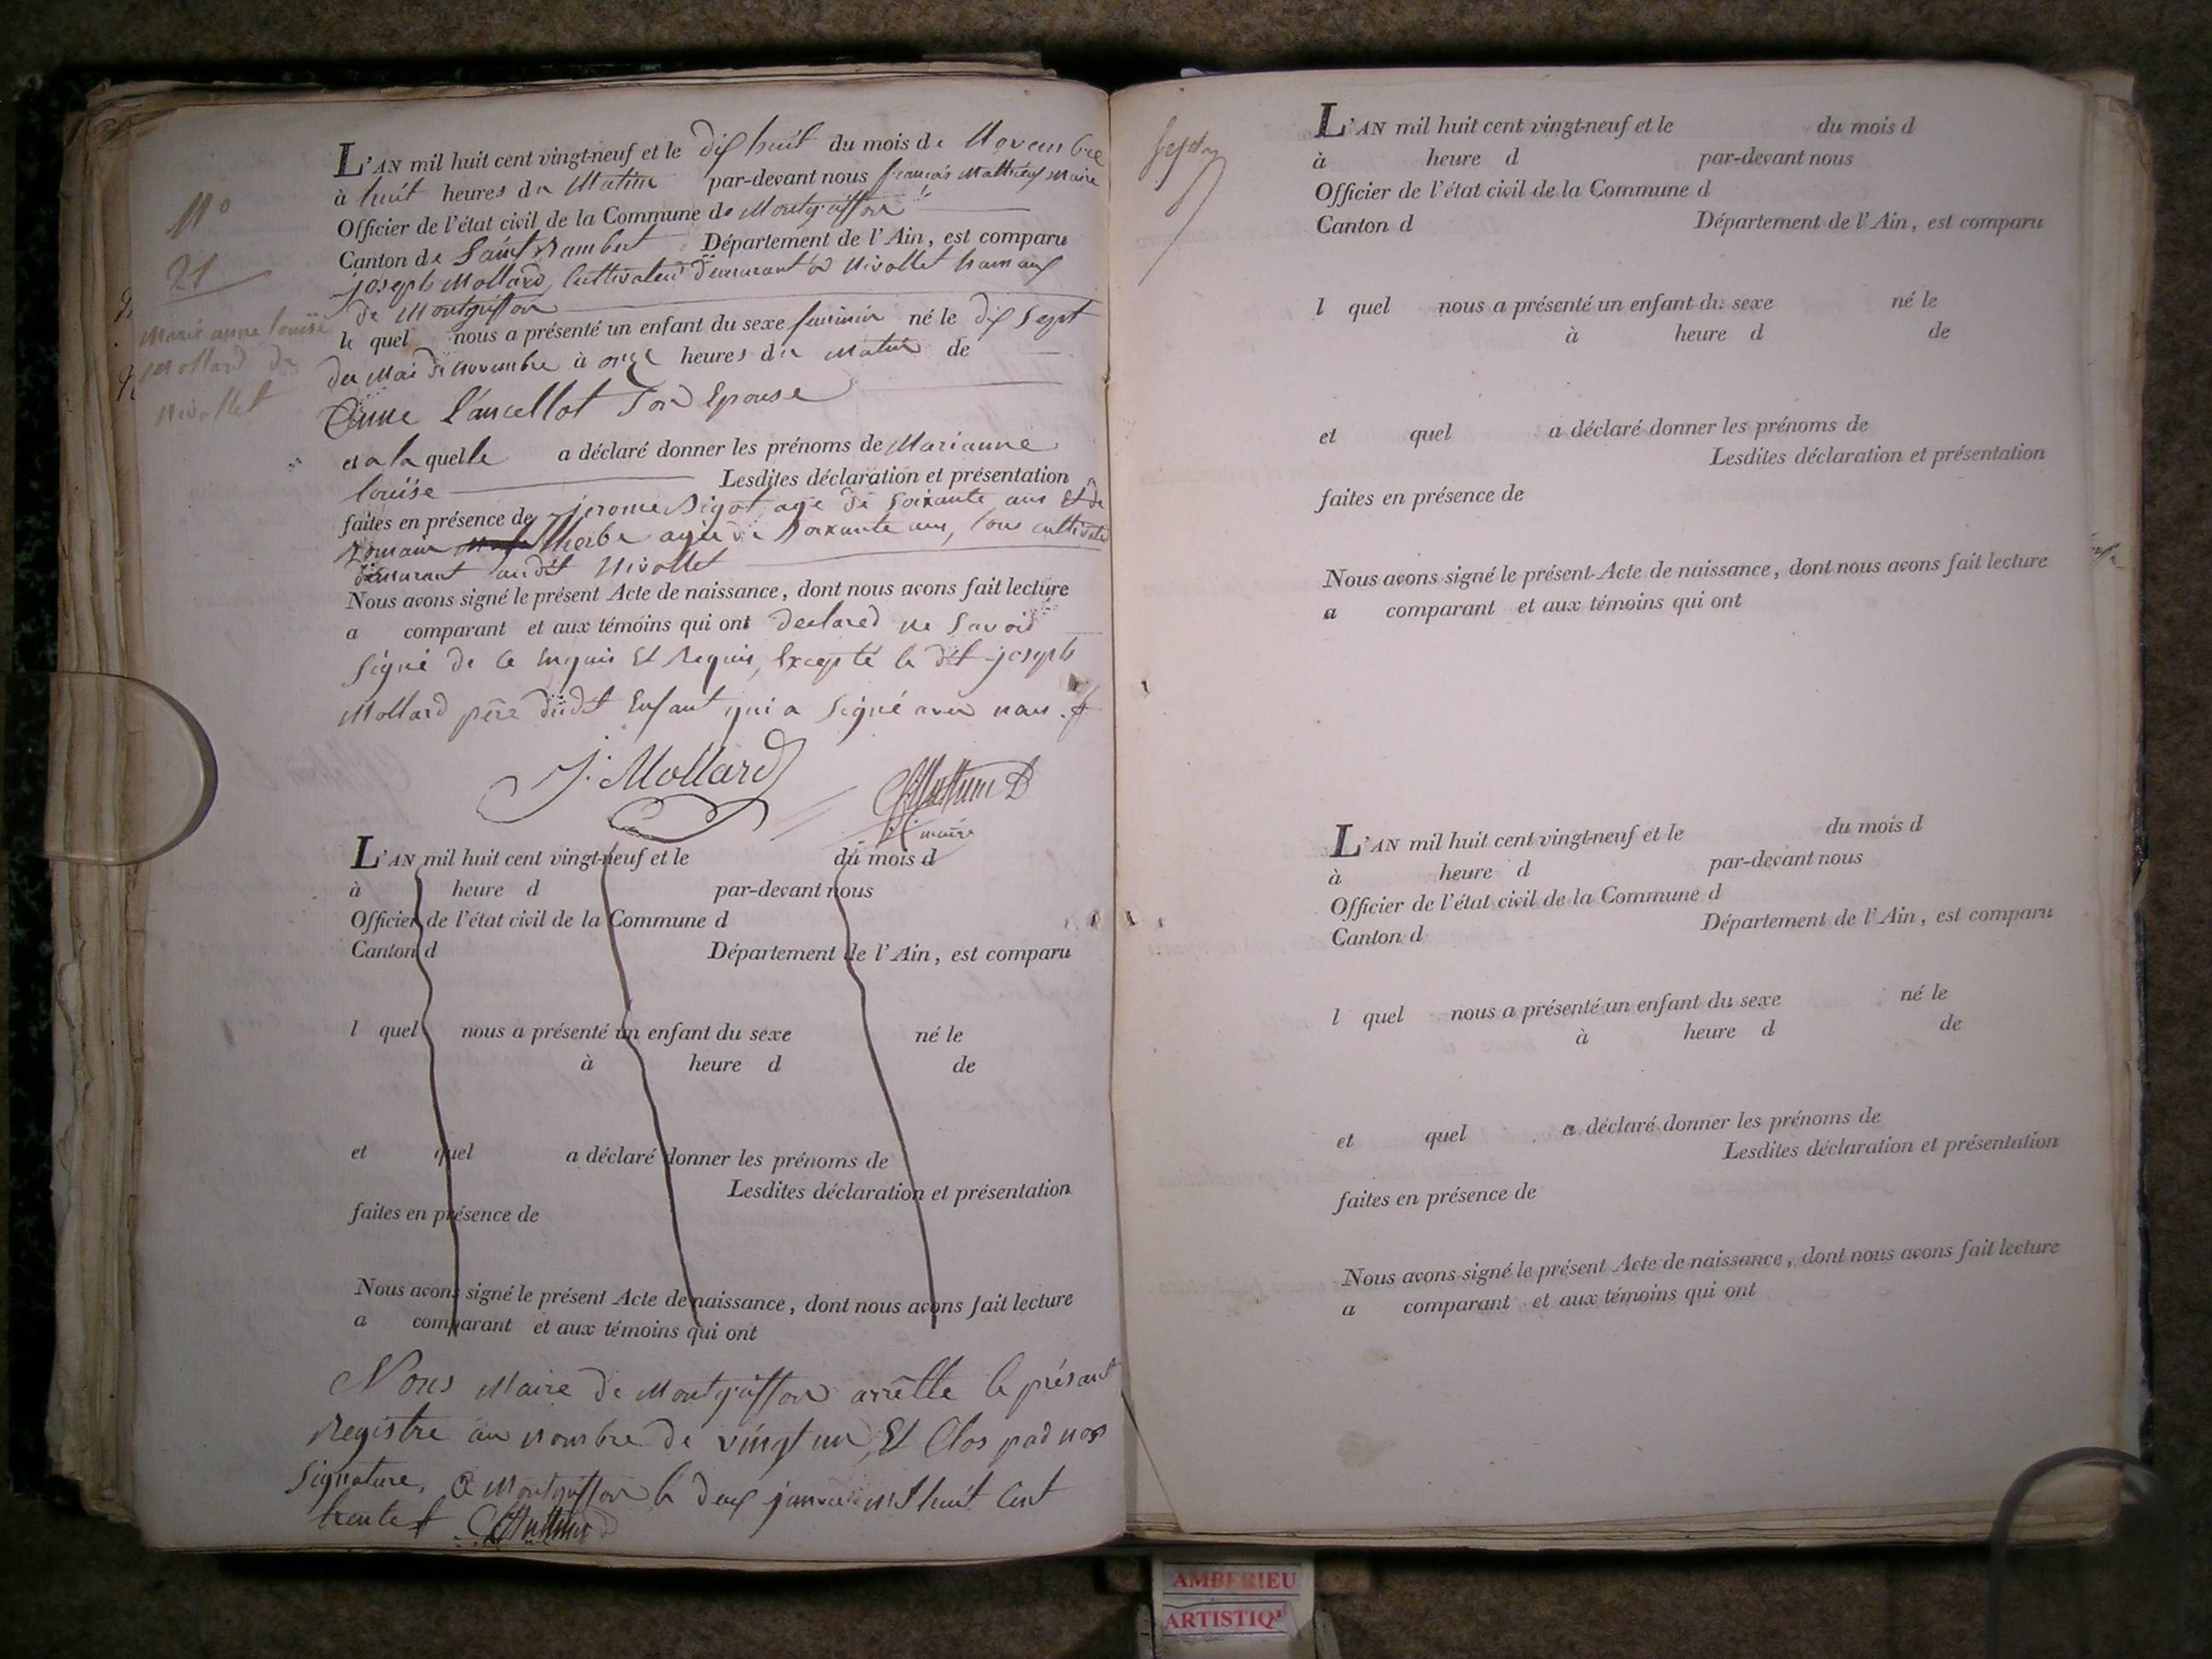 N°
21
Marie anne louise
Mollard de
Nivollet
L'AN mil huit cent vingt-neuf et le dix huit du mois de Novembre
à huit heures du Matin par-devant nous françois Matthieu Maire
Officier de l'état civil de la Commune de Montgriffon
Canton de Saint Rambert Département de l'Ain, est comparu
joseph Mollard, Cultivateur demurant à Nivollet hamaux
de Montgriffon
le quel nous a présenté un enfant du sexe feminin né le dix sept
du Mois de Novembre à onze heures du Matin de
Anne Lancellot Son Epouse
et a la quelle a déclaré donner les prénoms de Marianne
louise Lesdites déclaration et présentation
faites en présence de jerome Bigot agé de Soixante ans Et de
Romain therbe agé de Soixante ans, tous cultivateur
demurant audit Nivollet
Nous avons signé le présent Acte de naissance, dont nous avons fait lecture
a comparant et aux témoins qui ont declared ne Savoir
Signé de ce Enquis Et Requis, Excepté le dit joseph
Mollard père dudit Enfant qui a Signé avec nous.
J. Mollard
Matthieu
maire
L'AN mil huit cent vingt-neuf et le du mois d
à heure d par-devant nous
Officier de l'état civil de la Commune d
Canton d Département de l'Ain, est comparu
l quel nous a présenté un enfant du sexe né le
à heure d de
et quel a déclaré donner les prénoms de
Lesdites déclaration et présentation
faites en présence de
Nous avons signé le présent Acte de naissance, dont nous avons fait lecture
a comparant et aux témoins qui ont
Nous Maire de Montgriffon arrêtte le présant
Registre au nombre de vingt un, Et Clos par nos
Signature, A Montgriffon le deux janvier mil huit Cent
trente
L'AN mil huit cent vingt-neuf et le du mois d
à heure d par-devant nous
Officier de l'état civil de la Commune d
Canton d Département de l'Ain, est comparu
l quel nous a présenté un enfant du sexe né le
à heure d de
et quel a déclaré donner les prénoms de
Lesdites déclaration et présentation
faites en présence de
Nous avons signé le présent Acte de naissance, dont nous avons fait lecture
a comparant et aux témoins qui ont
L'AN mil huit cent vingt-neuf et le du mois d
à heure d par-devant nous
Officier de l'état civil de la Commune d
Canton d Département de l'Ain, est comparu
l quel nous a présenté un enfant du sexe né le
à heure d de
et quel a déclaré donner les prénoms de
Lesdites déclaration et présentation
faites en présence de
Nous avons signé le présent Acte de naissance, dont nous avons fait lecture
a comparant et aux témoins qui ont
AMBERIEU
ARTISTIQ